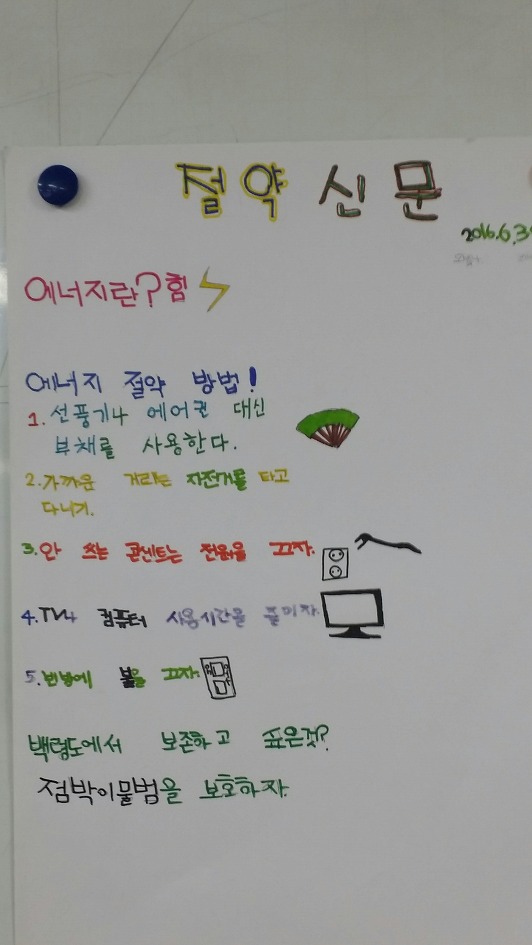 절약 신문
2016.6.3
에너지란? 힘
에너지 절약 방법!
1. 선풍기나 에어컨 대신
부채를 사용한다.
2. 가까운 거리는 자전거를 타고
다니기.
3. 안 쓰는 콘센트는 전원을 끄자.
4. TV나 컴퓨터 사용시간을 줄이자.
5. 빈방에 불을 끄자.
백령도에서 보존하고 싶은것?
점박이물범을 보호하자.